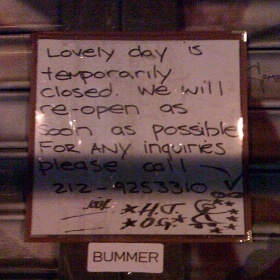 Lovely day is
temporarily
closed. We will
re-open as
soon as possible
FOR ANY inquiries
please call
212-9253310
*H.J
*O.G.
BUMMER